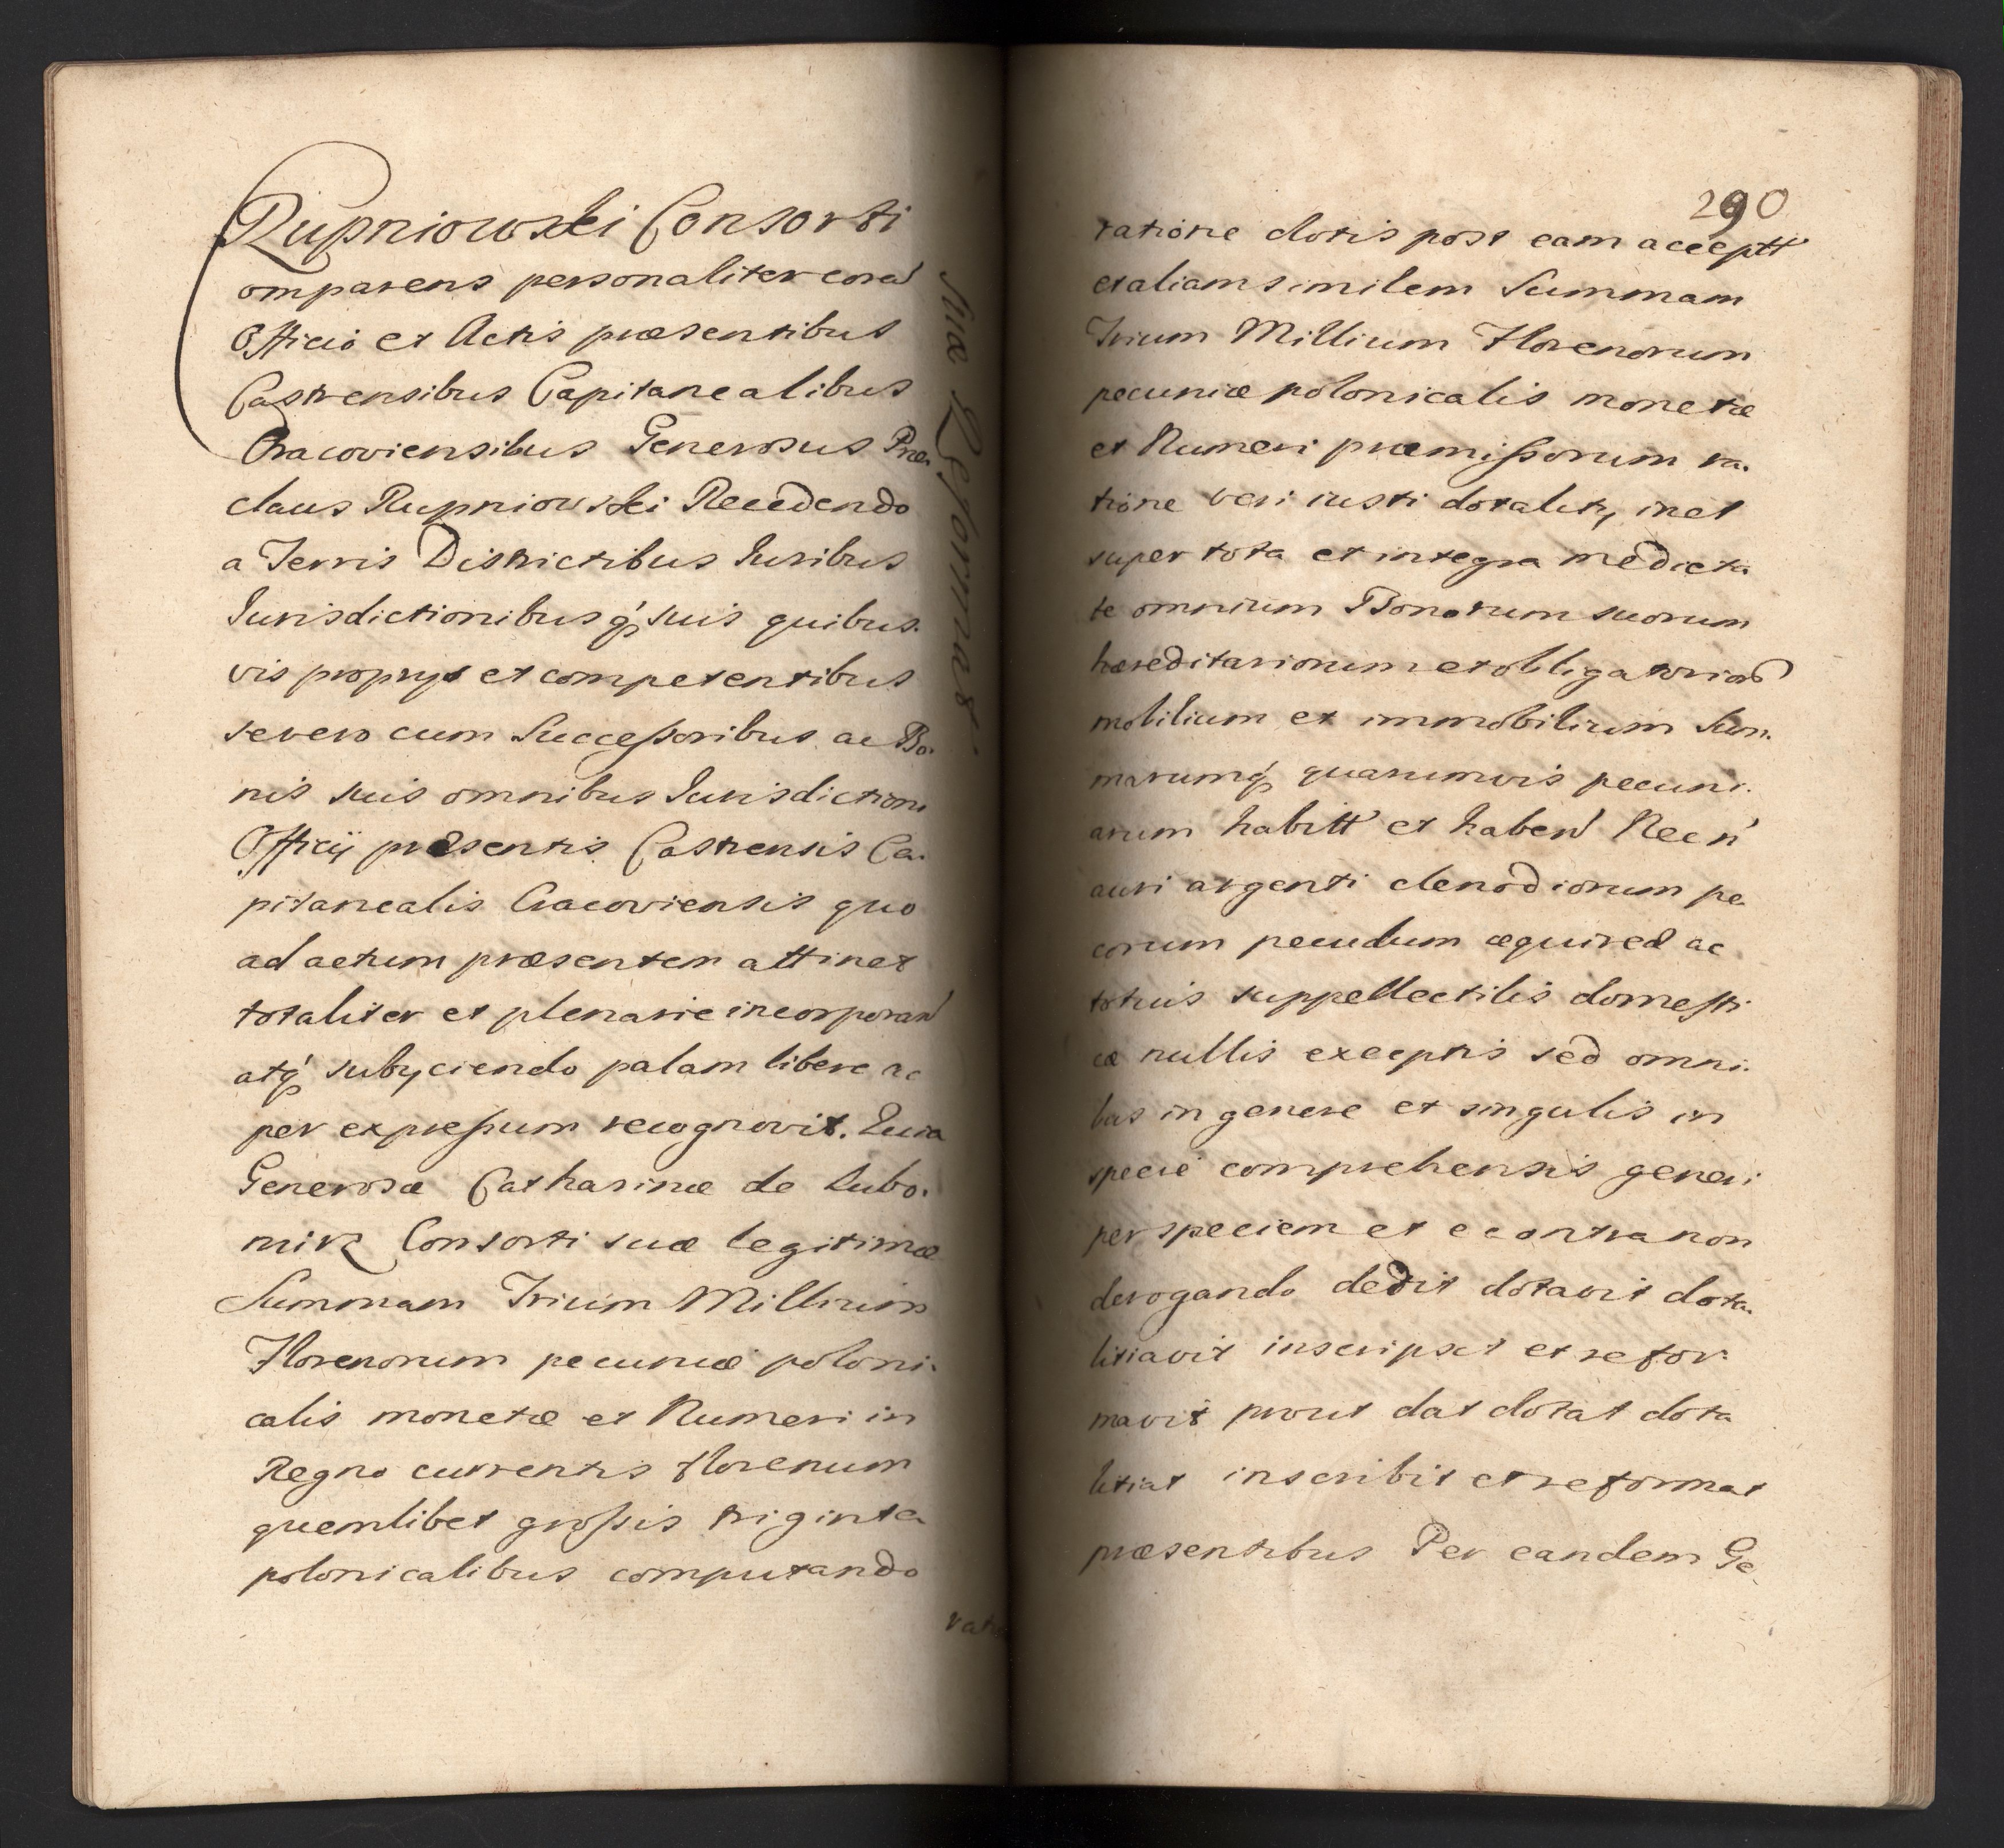 Rupniowski Consorti
suæ Reformat
omparens personaliter coram
Officio et Actis præsentibus
Castrensibus Capitanealibus
Cracoviensibus Generosus Præ.
claus Rupniowski Recedendo
a Terris Districtibus Iuribus
Iurisdictionibusq́ suis quibus.
vis proprys et competentibus
severo cum Successoribus ac Bo.
nis suis omnibus Iurisdictioni
Officij præsentis Castrensis Ca.
pitanealis Cracoviensis quo
ad actum præsentem attinet
totaliter et plenarie incorporan
atq́ subyciendo palam libere ac
per expressum recognovit. Quia
Generosæ Catharinæ de Lubo.
mirz Consorti suæ legitimæ
Summam Trium Millium
Florenorum pecuniæ poloni.
calis monetæ et Numeri in
Regno currentis florenum
quemlibet grossis triginta
polonicalibus computando
ratio
290
ratione dotis post eam acceptt
et aliam similem Summam
Trium Millium Florenorum
pecuniæ polonicalis monetæ
et Numeri præmissorum ra.
tione veri iusti dotality inet
super tota et integra medieta
te omnium Bonorum suorum
hæreditariorum et obligatorior
mobilium et immobilium Sum.
marumq́ quarumvis pecuni.
arum habitt et haben Necn
auri argenti clenodiorum pe
corum pecudum æquired ac
totius suppellectilis domesti
cæ nullis exceptis sed omni.
bus in genere et singulis in
specie comprehensis generi
per speciem et econtra non
derogando dedit dotavit dota.
litiavit inscripsit et refor.
mavit prout dat dotat dota
litiat inscribit et reformat
præsentibus Per eandem Ge.